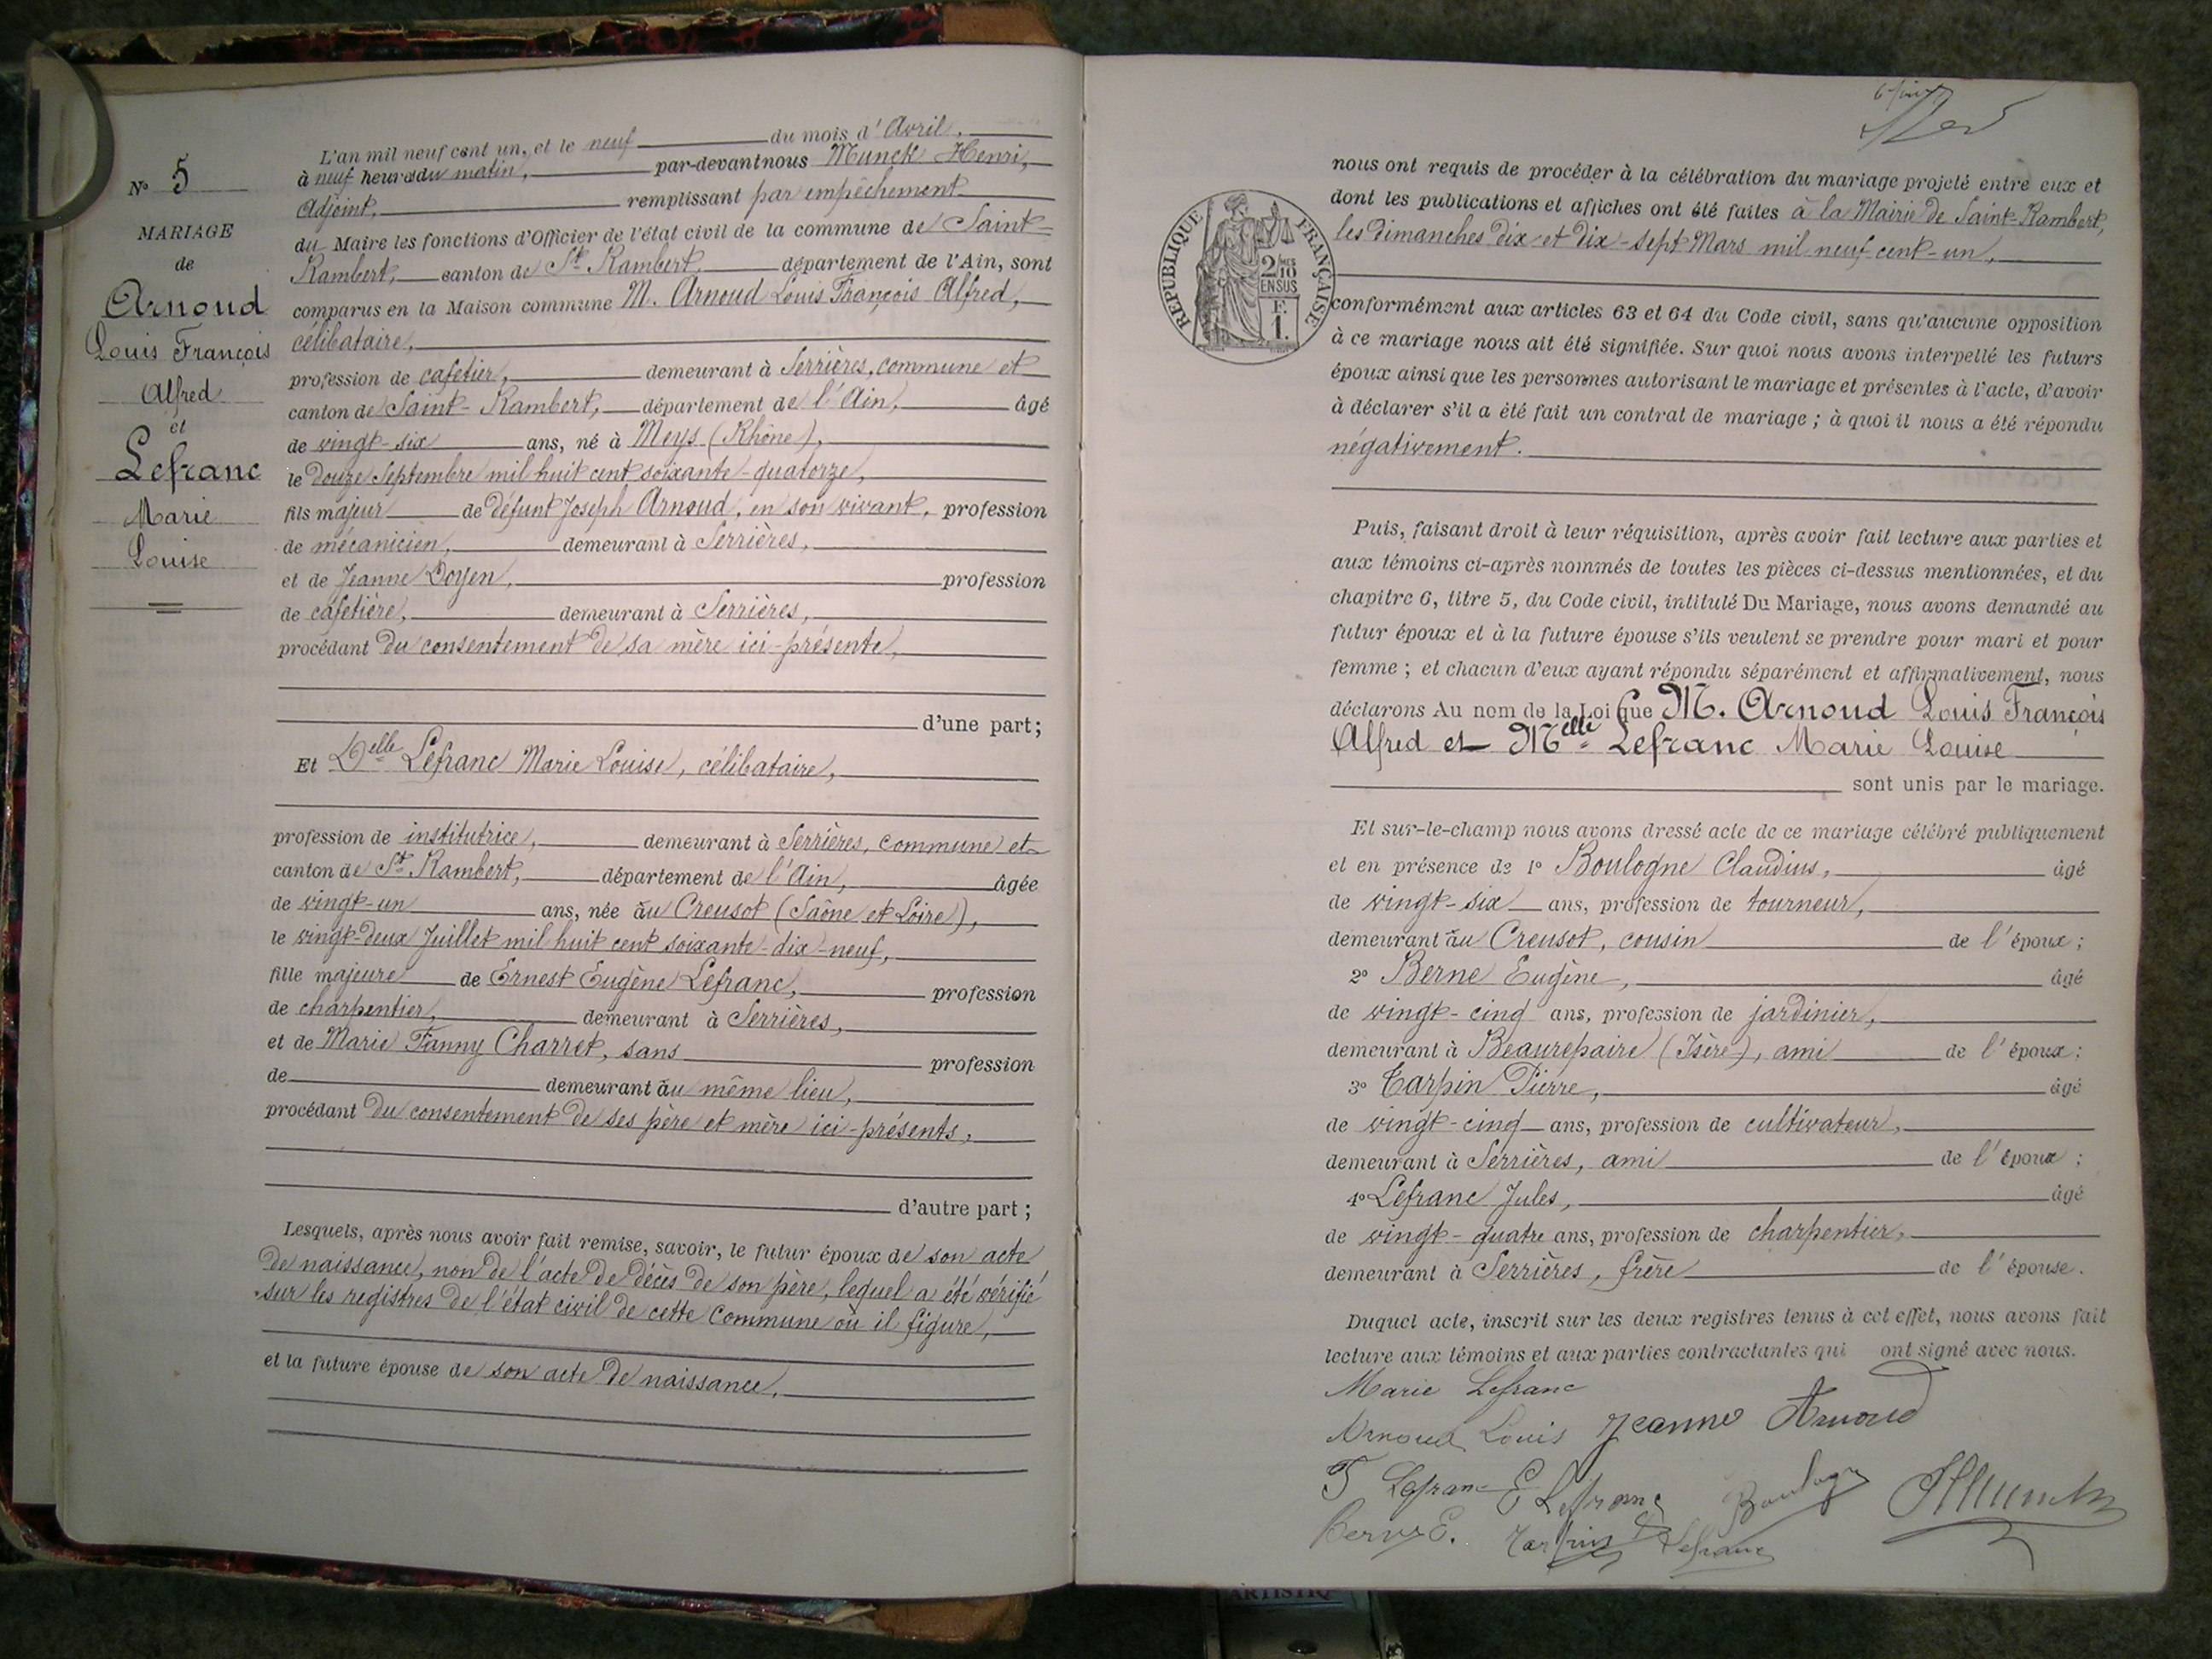 N° 5
MARIAGE
de
Arnoud
Louis François
Alfred
et
Lefranc
Marie
Louise
L'an mil neuf cent un, et le neuf du mois d'Avril,
à neuf heures du matin, par-devant nous Munck Henri,
Adjoint, remplissant par empêchement
du Maire les fonctions d'Officier de l'état civil de la commune de Saint-
Rambert, canton de St Rambert, département de l'Ain, sont
comparus en la Maison commune M. Arnoud Louis François Alfred,
célibataire,
profession de cafetier, demeurant à Serrières, commune et
canton de Saint-Rambert, département de l'Ain, âgé
de vingt-six ans, né à Meys (Rhône),
le douze Septembre mil huit cent soixante-quatorze,
fils majeur de défunt Joseph Arnoud, en son vivant, profession
de mécanicien, demeurant à Serrières,
et de Jeanne Doyen, profession
de cafetière, demeurant à Serrières,
procédant du consentement de sa mère ici-présente,
d'une part;
Et Delle Lefranc Marie Louise, célibataire,
profession de institutrice, demeurant à Serrières, commune et
canton de St Rambert, département de l'Ain, âgée
de vingt-un ans, née au Creusot (Saône et Loire),
le vingt-deux Juillet mil huit cent soixante-dix-neuf,
fille majeure de Ernest Eugène Lefranc, profession
de charpentier, demeurant à Serrières,
et de Marie Fanny Charret, sans profession
de demeurant au même lieu,
procédant du consentement de ses père et mère ici-présents,
d'autre part;
Lesquels, après nous avoir fait remise, savoir, le futur époux de son acte
de naissance, non de l'acte de décès de son père, lequel a été vérifié
sur les registres de l'état civil de cette commune où il figure,
et la future épouse de son acte de naissance,
RÉPUBLIQUE FRANÇAISE
2/10
EN SUS
F.
1.
nous ont requis de procéder à la célébration du mariage projeté entre eux et
dont les publications et affiches ont été faites à la Mairie de Saint-Rambert,
les Dimanches dix et dix-sept Mars mil neuf cent-un,
conformément aux articles 63 et 64 du Code civil, sans qu'aucune opposition
à ce mariage nous ait été signifiée. Sur quoi nous avons interpellé les futurs
époux ainsi que les personnes autorisant le mariage et présentes à l'acte, d'avoir
à déclarer s'il a été fait un contrat de mariage; à quoi il nous a été répondu
négativement.
Puis, faisant droit à leur réquisition, après avoir fait lecture aux parties et
aux témoins ci-après nommés de toutes les pièces ci-dessus mentionnées, et du
chapitre 6, titre 5, du Code civil, intitulé Du Mariage, nous avons demandé au
futur époux et à la future épouse s'ils veulent se prendre pour mari et pour
femme; et chacun d'eux ayant répondu séparément et affirmativement, nous
déclarons Au nom de la Loi que M. Arnoud Louis François
Alfred et Melle Lefranc Marie Louise
sont unis par le mariage.
Et sur-le-champ nous avons dressé acte de ce mariage célébré publiquement
et en présence de 1° Boulogne Claudius, âgé
de vingt-six ans, profession de tourneur,
demeurant au Creusot, cousin de l'époux;
2° Berne Eugène, âgé
de vingt-cinq ans, profession de jardinier,
demeurant à Beaurepaire (Isère), ami de l'époux;
3° Tarpin Pierre, âgé
de vingt-cinq ans, profession de cultivateur,
demeurant à Serrières, ami de l'époux;
4° Lefranc Jules, âgé
de vingt-quatre ans, profession de charpentier,
demeurant à Serrières, frère de l'épouse.
Duquel acte, inscrit sur les deux registres tenus à cet effet, nous avons fait
lecture aux témoins et aux parties contractantes qui ont signé avec nous.
Marie Lefranc
Arnoud Louis Jeanne Arnoud
Lefranc E Lefranc Boulogne HMunck
Berne E. Tarpin Lefranc
ARTISTIQ